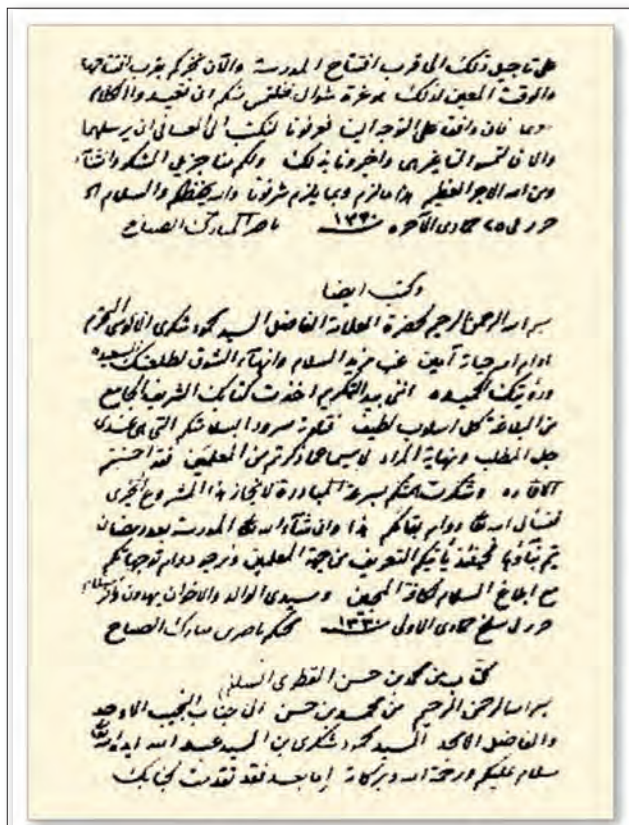 على تأجيل ذلك الى قرب افتتاح المدرسة والآن نخبركم بقرب افتتاحها
والوقت المعين لذلك هو غرة شوال فنلتمس منكم ان تعيدوا الكلام
فان وافق على التوجه الينا عرفونا لنكتب الى ان يرسلهما
والا فالتمسوا لنا غيرهما واخبرونا بذلك ولكم منا جزيل الشكر والثناء
ومن الله الاجر العظيم هذا ما لزم وبما يلزم شرفونا والله يحفظكم والسلام
حرر في ٢٥ جمادى الآخرة ١٣٣٠ ناصر المبارك الصباح
وكتب ايضا
بسم الله الرحمن الرحيم لحضرة العلامة الفاضل السيد محمود شكري الالوسي المحترم
ادام الله حياته آمين غب مزيد السلام وانهاء الشوق لطلعتك السعيدة
ورؤيتك الحميده انني بيد التكريم اخذت كتابك الشريف الجامع
من البلاغة كل اسلوب لطيف فتلوته سرورا بسلامتكم التي هي عندي
جل المطلب ونهاية المراد لا سيما ما ذكرتم من المعلمين فقد احسنتم
الافاده وشكرت همتكم بسرعة المبادرة لانجاز هذا المشروع الخيري
فنسأل الله تعالى دوام بقائكم هذا وان شاء الله تعالى المدرسة بعد رمضان
يتم بناؤها فحينئذ يأتيكم التعريف من جهة المعلمين ونرجو دوام توجهاتكم
مع ابلاغ السلام لكافة المحبين وسيدي الوالد والاخوان يهدون وافر السلام
حرر في سلخ جمادى الاولى ١٣٣٠ محبكم ناصر بن مبارك الصباح
كتاب من محمد بن حسن القطري السلفي
بسم الله الرحمن الرحيم من محمد بن حسن الى جناب النجيب الاوحد
والفاضل الامجد السيد محمود شكري بن السيد عبد الله ايده الله تعالى
سلام عليكم ورحمة الله وبركاته اما بعد فقد تقدمت لجنابك